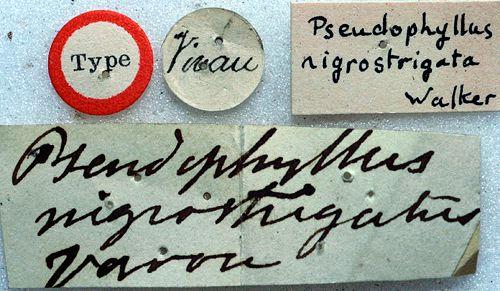 Type
Pseudophyllus
nigrostrigata
Walker
Pseudophyllus
nigrostrigatus